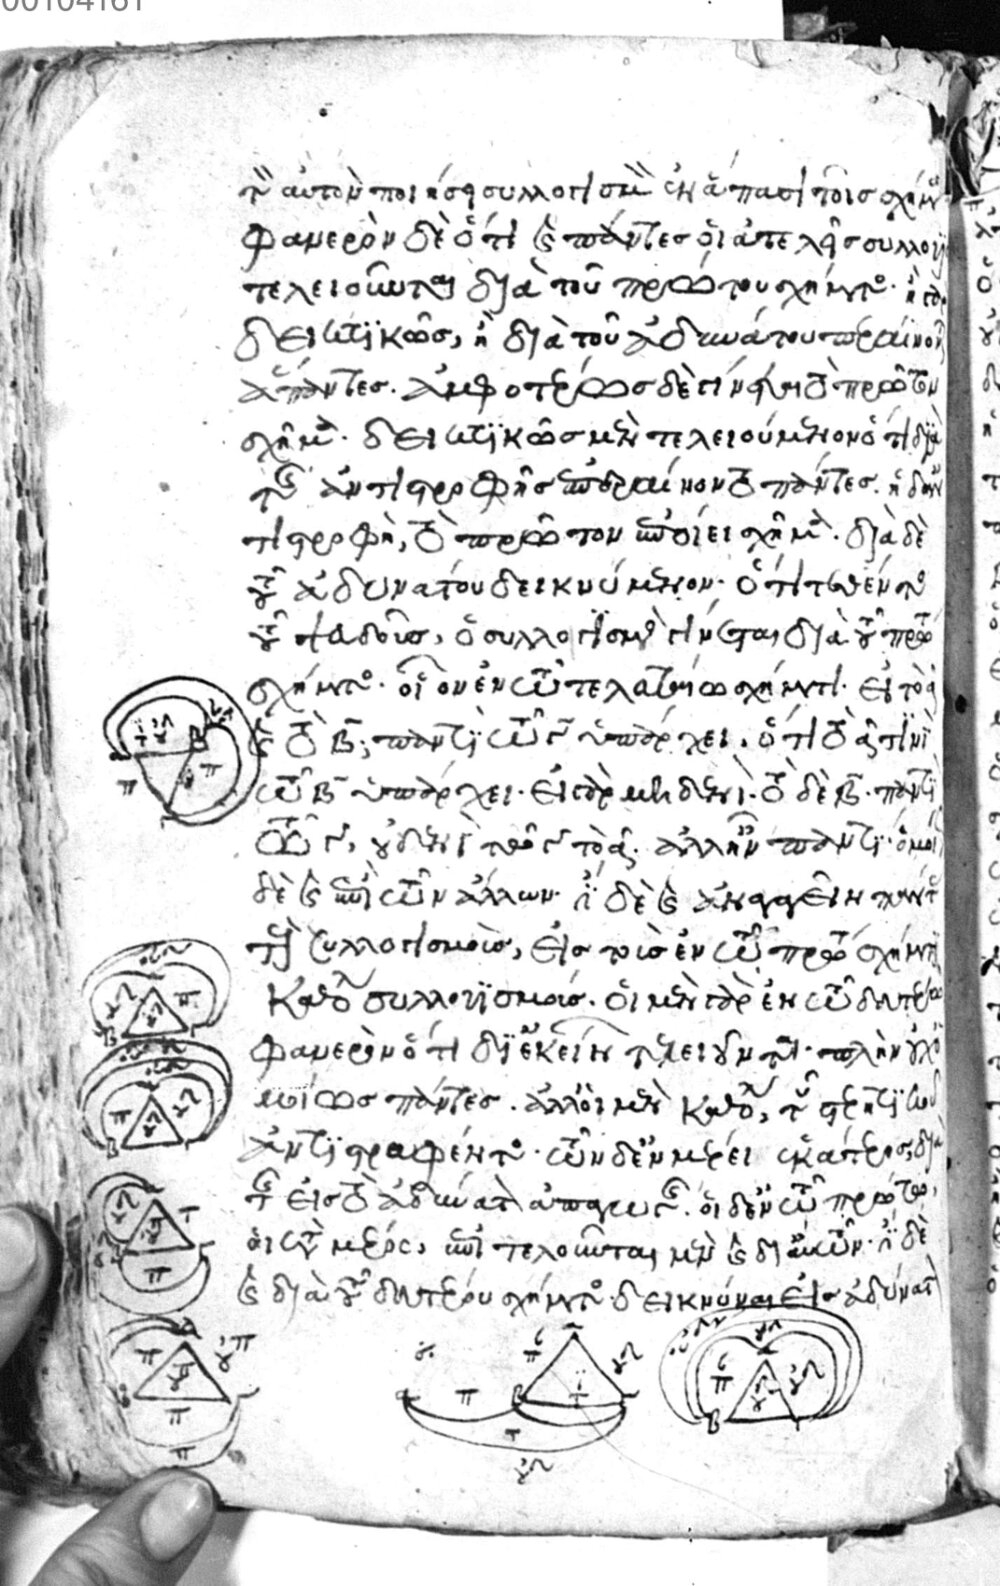 00104161
τὸν αὐτὸν ποιήσει συλλογισμὸν ἐν ἅπασι τοῖς σχήμασι
φανερὸν δὲ ὅτι καὶ πάντες οἱ ἀτελεῖς συλλογισμοὶ
τελειοῦνται διὰ τοῦ πρώτου σχήματος· ἢ γὰρ
δεικτικῶς, ἢ διὰ τοῦ ἀδυνάτου περαίνονται
ἅπαντες. ἀμφοτέρως δὲ γίνεται τὸ πρῶτον
σχῆμα· δεικτικῶς μὲν τελειούμενον ὅτι διὰ
τῆς ἀντιστροφῆς ἐπεραίνοντο πάντες. ἡ δὲ ἀν
τιστροφὴ, τὸ πρῶτον ἐποίει σχῆμα· διὰ δὲ
τοῦ ἀδυνάτου δεικνύμενον· ὅτι τεθέντος
τοῦ ψεύδους, ὁ συλλογισμὸς γίνεται διὰ τοῦ πρώτου
σχήματος· οἷον ἐν τῷ τελευταίῳ σχήματι· εἰ τὸ α
καὶ τὸ β, παντὶ τῷ γ ὑπάρχει, ὅτι τὸ α τινὶ
τῷ β ὑπάρχει· εἰ γὰρ μηδενὶ· τὸ δὲ β παντὶ
τῷ γ, οὐδενὶ τῷ γ τὸ α· ἀλλ' ἦν παντί· ὁμοίως
δὲ καὶ ἐπὶ τῶν ἄλλων· ἔστι δὲ καὶ ἀναγαγεῖν πάντας
τοὺς συλλογισμοὺς, εἰς τοὺς ἐν τῷ πρώτῳ σχήματι
καθόλου συλλογισμούς. οἱ μὲν γὰρ ἐν τῷ δευτέρῳ
φανερὸν ὅτι δι' ἐκείνων τελειοῦνται· πλὴν οὐχ ὁ
μοίως πάντες. ἀλλ' οἱ μὲν καθόλου, τοῦ στερητικοῦ
ἀντιστραφέντος· τῶν δ' ἐν μέρει ἑκάτερος, διὰ
τῆς εἰς τὸ ἀδύνατον ἀπαγωγῆς. οἱ δ' ἐν τῷ πρώτῳ,
οἱ κατὰ μέρος, ἐπιτελοῦνται μὲν καὶ δι' αὑτῶν· ἔστι δὲ
καὶ διὰ τοῦ δευτέρου σχήματος δεικνύναι εἰς ἀδύνατον